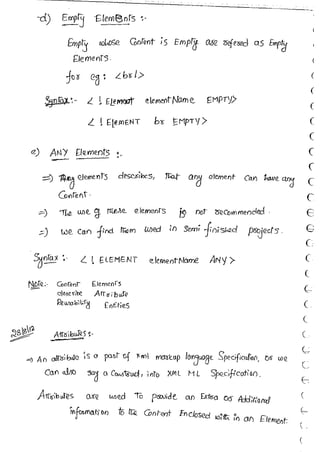 d) Empty Elements :-
Empty whose Content is Empty are refered as Empty
Elements.
for eg: <br/>
Syntax:- <! Element elementName EMPTY>
<! ElEMENT br EMPTY>
e) ANY Elements :-
=> Any elements describes, That any element Can have any
Content.
=) The use of these elements is not recommended.
=) We can find them used in Semi finished projects.
Syntax :- <! ELEMENT elementName ANY>
Note:- Content Elements
describe Attribute
Reusability Entities
28/8/12
Attributes :-
=> An attribute is a part of xml markup language Specification, or we
Can also say a Construct, into XML ML Specification.
Attributes are used To provide an Extra or Additional
information to the Content Enclosed with in an Element.